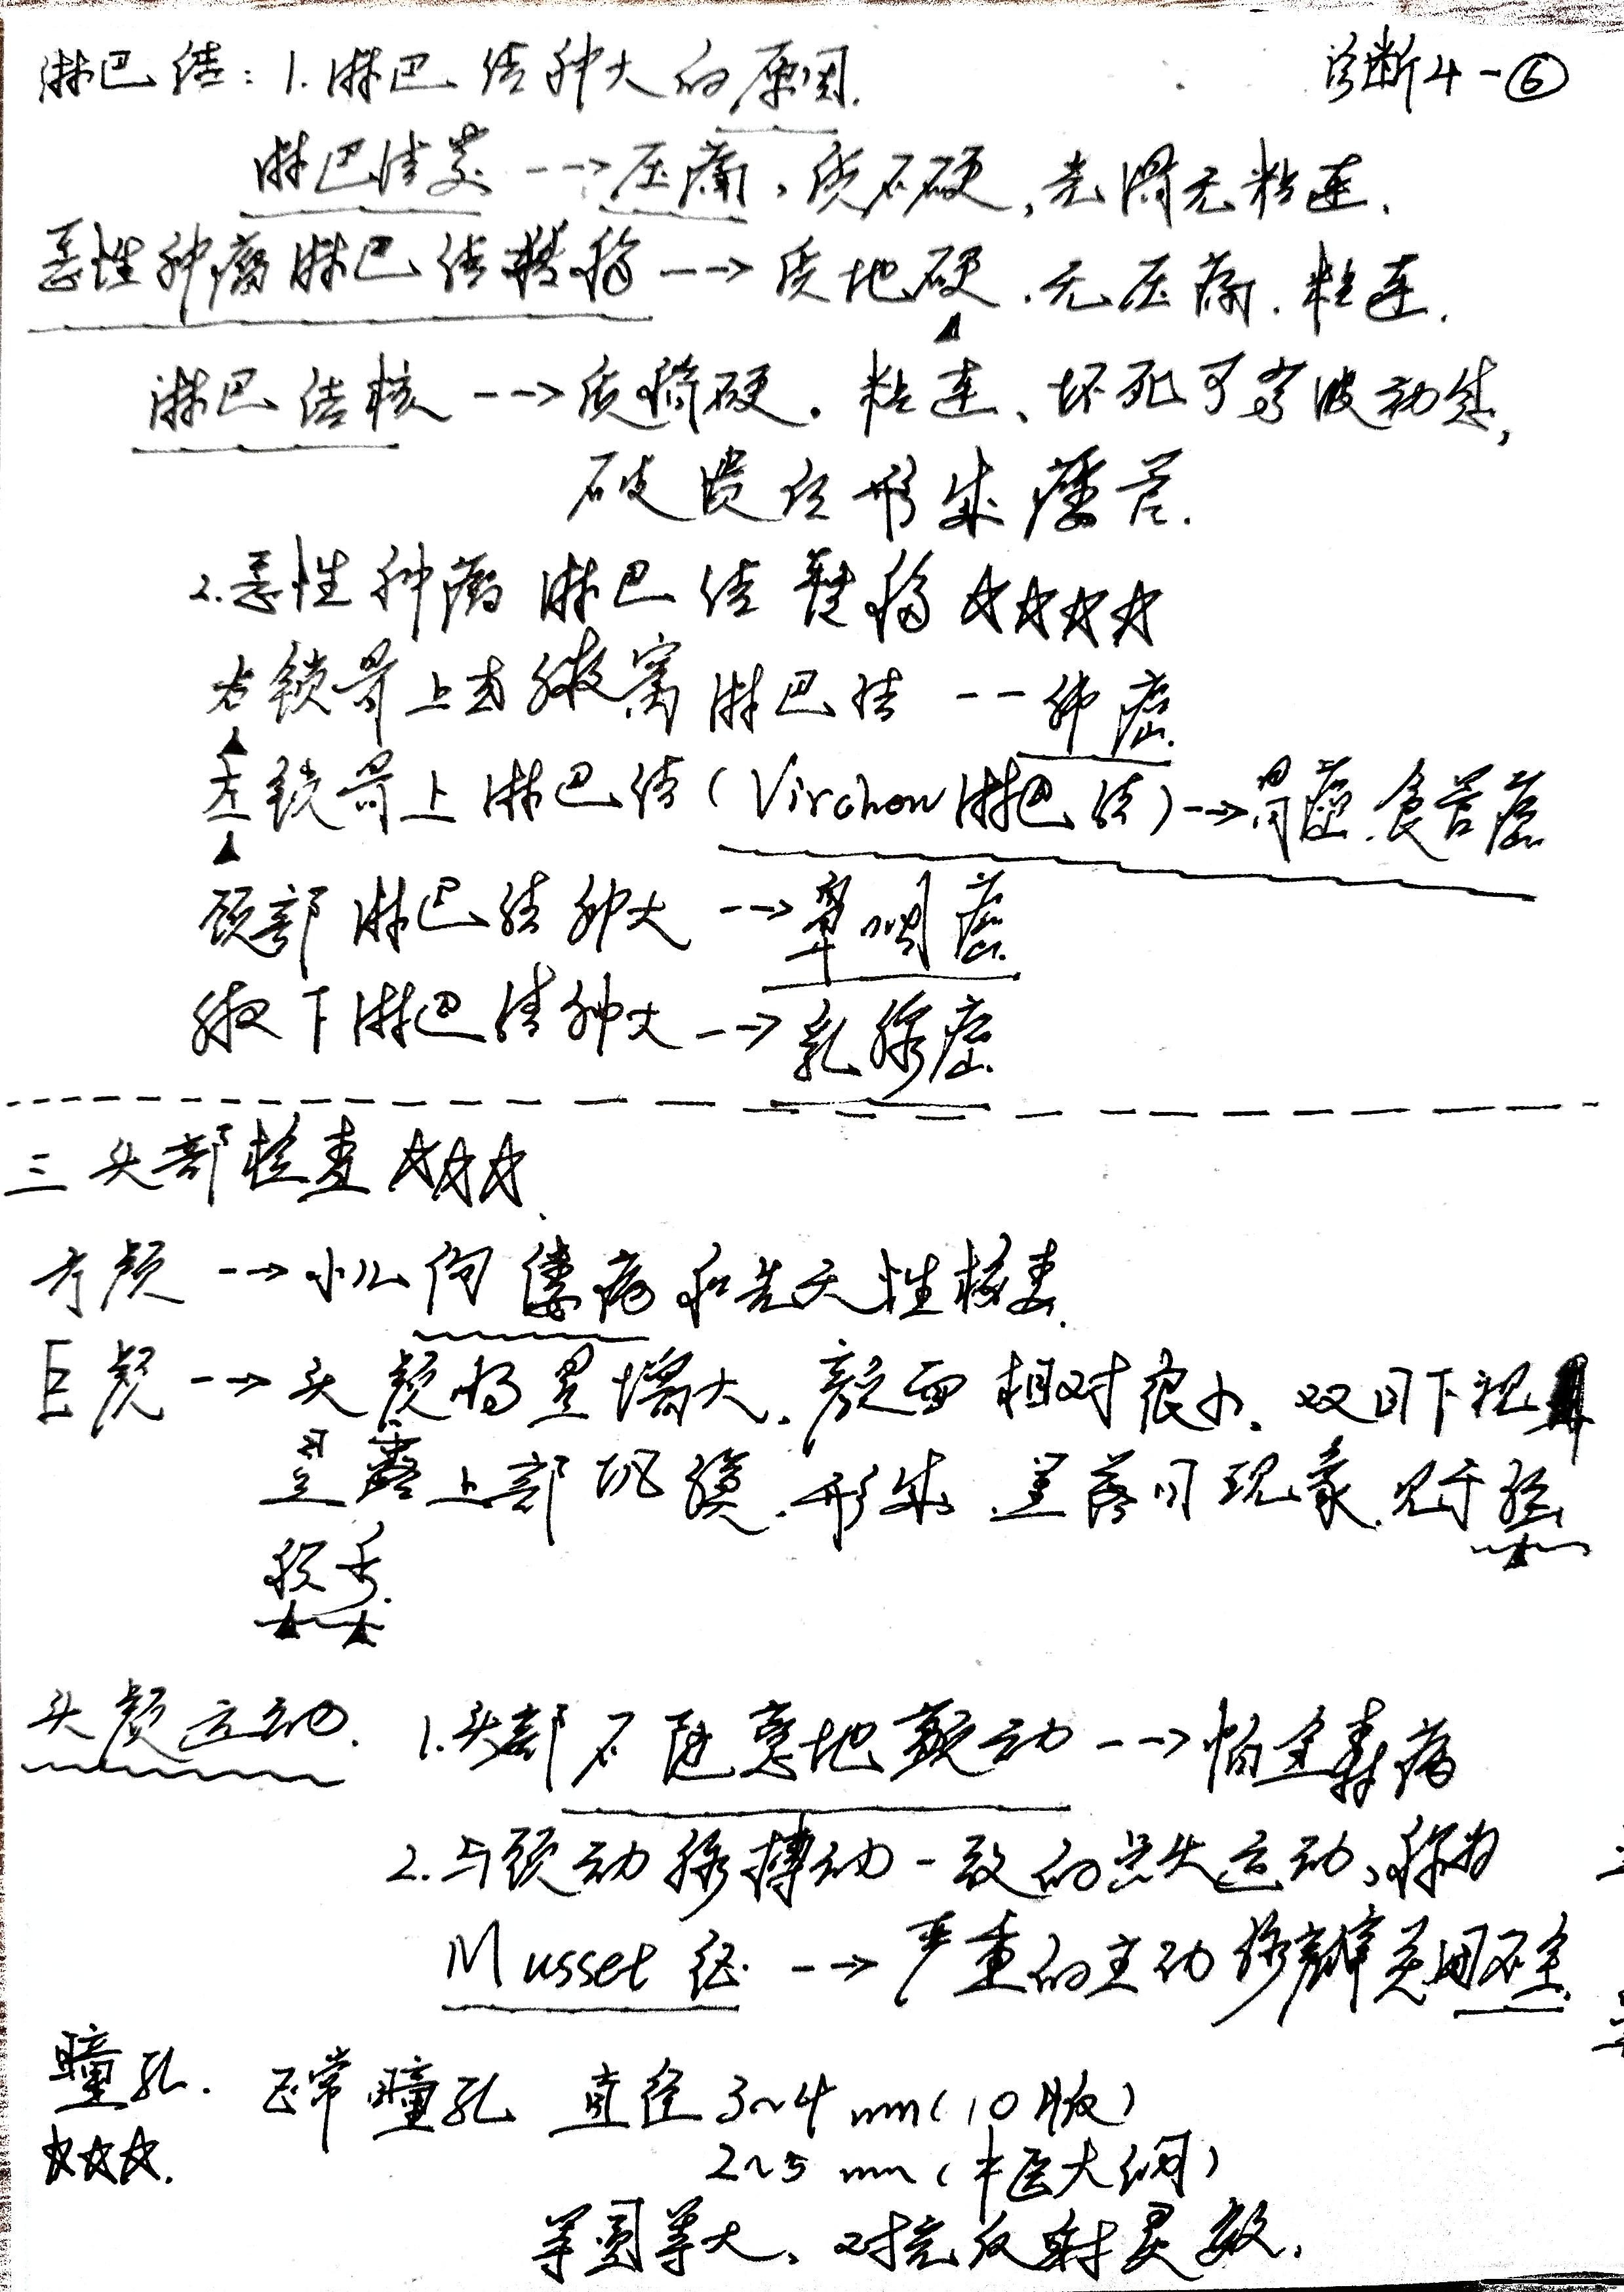 诊断4-⑥
淋巴结:1.淋巴结肿大的原因.
淋巴结炎-->压痛、质不硬,光滑无粘连.
恶性肿瘤淋巴结转移-->质地硬.无压痛.粘连.
淋巴结核-->质稍硬.粘连、坏死可有波动感,
破溃后形成瘘管.
2.恶性肿瘤淋巴结转移☆☆☆☆
右锁骨上或腋窝淋巴结--肺癌.
左锁骨上淋巴结(Virchow淋巴结)-->胃癌.食管癌
颈部淋巴结肿大-->鼻咽癌.
腋下淋巴结肿大-->乳腺癌.
三 头部检查☆☆☆.
方颅-->小儿佝偻病和先天性梅毒.
巨颅-->头颅明显增大.颜面相对很小.双目下视
巩膜上部巩膜.形成 呈落日现象.见于脑
积水.
头颅运动. 1.头部不随意地颤动-->帕金森病
2.与颈动脉搏动一致的点头运动、称为
Musset征.-->严重的主动脉瓣关闭不全.
瞳孔. 正常瞳孔 直径3~4mm(10版)
☆☆☆. 2~5mm(中医大纲)
等圆等大、对光反射灵敏.